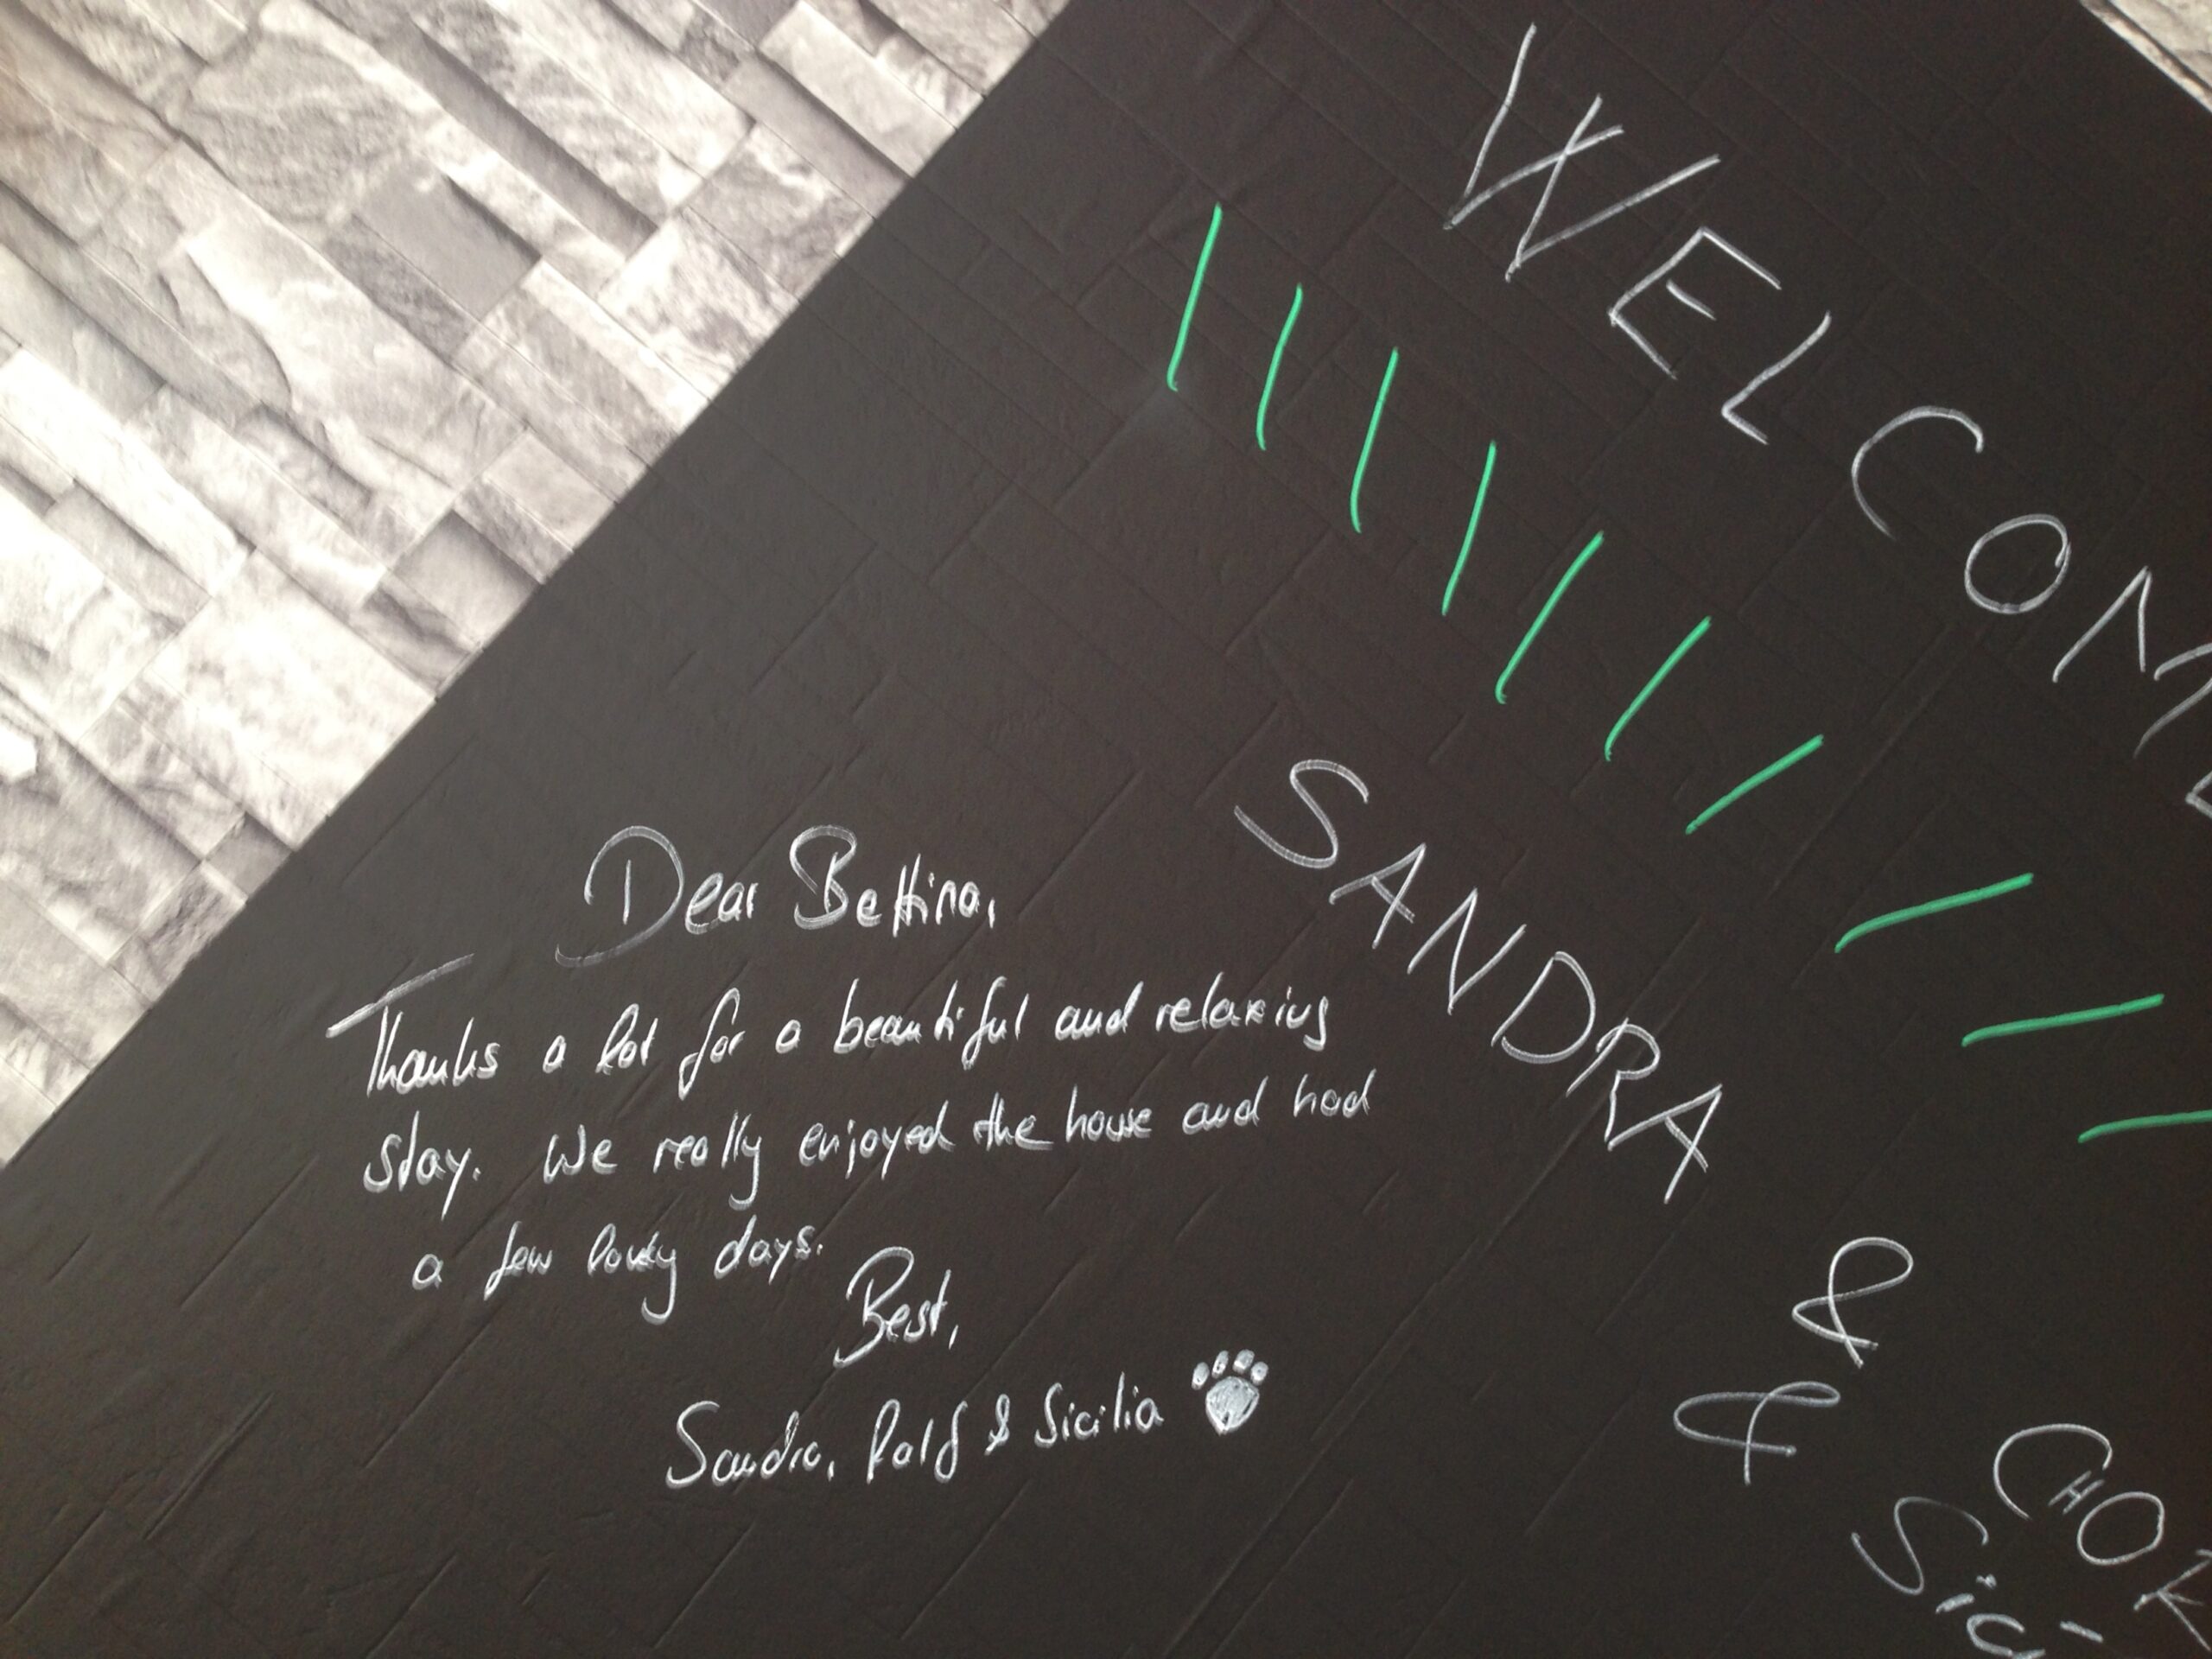 WELCOME
SANDRA
&
&
CHO
Sici
Dear Bettina,
Thanks a lot for a beautiful and relaxing
stay. We really enjoyed the house and had
a few lovely days.
Best,
Sandra, Ralf & Sicilia